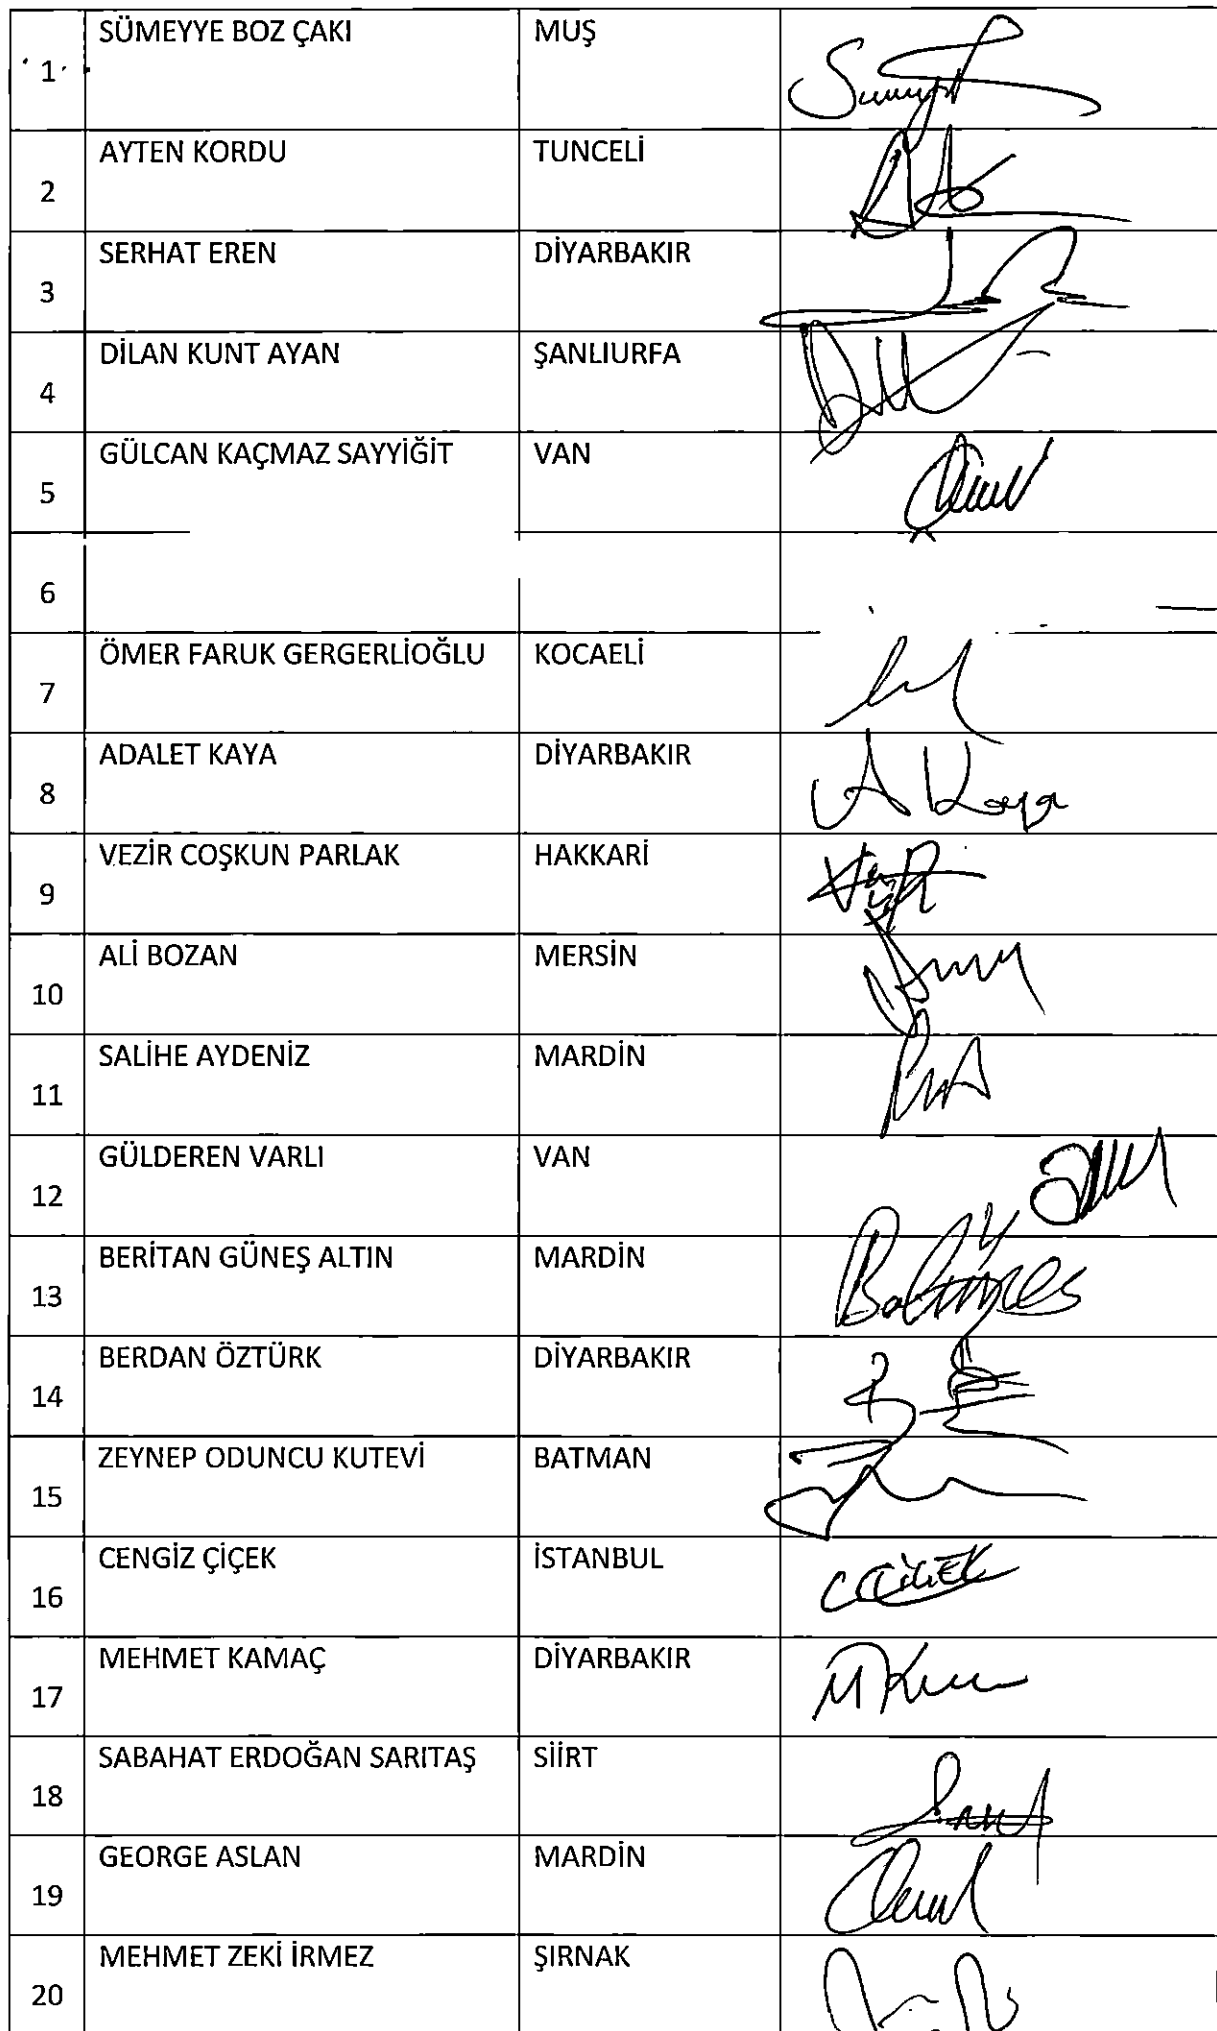 1 SÜMEYYE BOZ ÇAKI MUŞ
2 AYTEN KORDU TUNCELİ
3 SERHAT EREN DİYARBAKIR
4 DİLAN KUNT AYAN ŞANLIURFA
5 GÜLCAN KAÇMAZ SAYYİĞİT VAN
6
7 ÖMER FARUK GERGERLİOĞLU KOCAELİ
8 ADALET KAYA DİYARBAKIR A Kaya
9 VEZİR COŞKUN PARLAK HAKKARİ
10 ALİ BOZAN MERSİN
11 SALİHE AYDENİZ MARDİN
12 GÜLDEREN VARLI VAN
13 BERİTAN GÜNEŞ ALTIN MARDİN
14 BERDAN ÖZTÜRK DİYARBAKIR
15 ZEYNEP ODUNCU KUTEVİ BATMAN
16 CENGİZ ÇİÇEK İSTANBUL C ÇİÇEK
17 MEHMET KAMAÇ DİYARBAKIR
18 SABAHAT ERDOĞAN SARITAŞ SİİRT
19 GEORGE ASLAN MARDİN
20 MEHMET ZEKİ İRMEZ ŞIRNAK